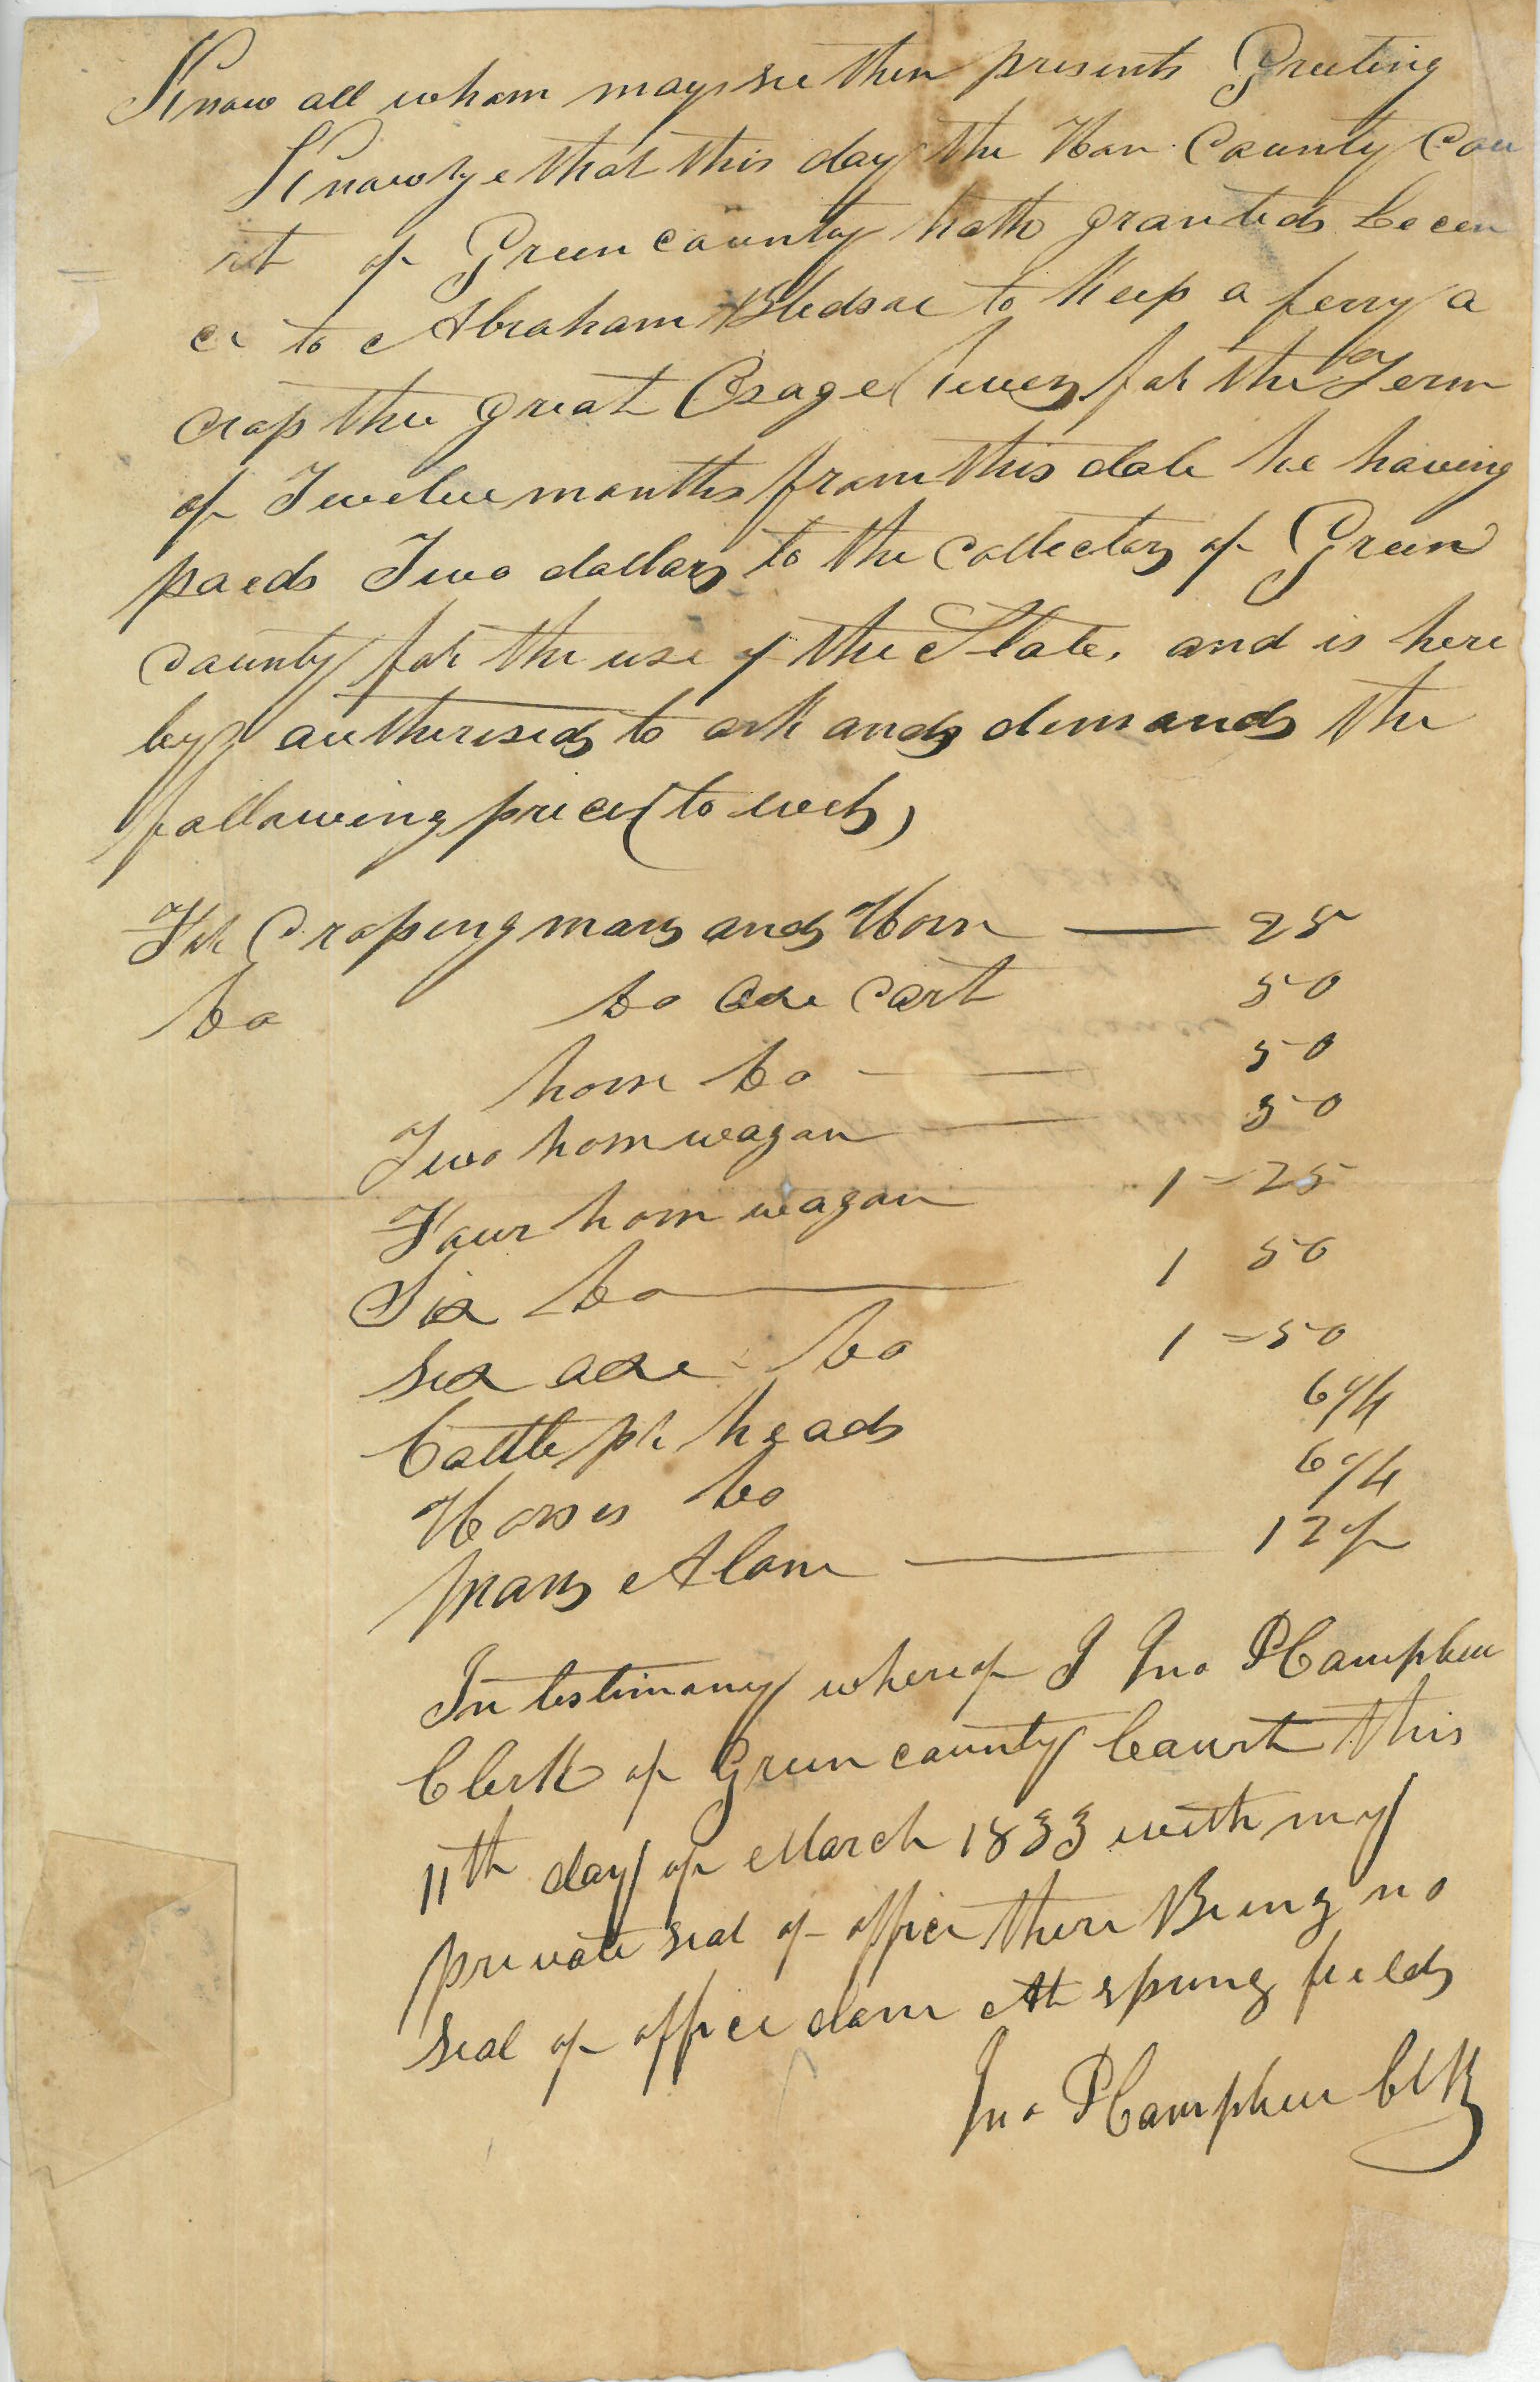 Know all whom may see then presents Greeting
Know ye that this day the Hon County Cou
rt of Green county hath granted Licen
ce to Abraham Bledsoe to Keep a ferry a
cross the great Osage River for the Term
of Twelve months from this date he having
paed Two dollars to the Collector of Green
county for the use of the State, and is here
by autherised to ask and demand the
following price (to wit)
For Crossing man and Horse — 25
Do Do oxe cart 50
horse Do — 50
Two horse wagan — 50
Four horse wagan 1 - 25
Six Do — 1 50
six oxe Do 1 = 50
Cattle pr head 6 1/4
Horses Do 6 1/4
man Alone — 12 1/2
In testimony whereof I Jno P Campbell
Clerk of Green county Court this
11th day of March 1833 with my
private seal of office there Being no
seal of office done At spring field
Jno P Campbell Clk